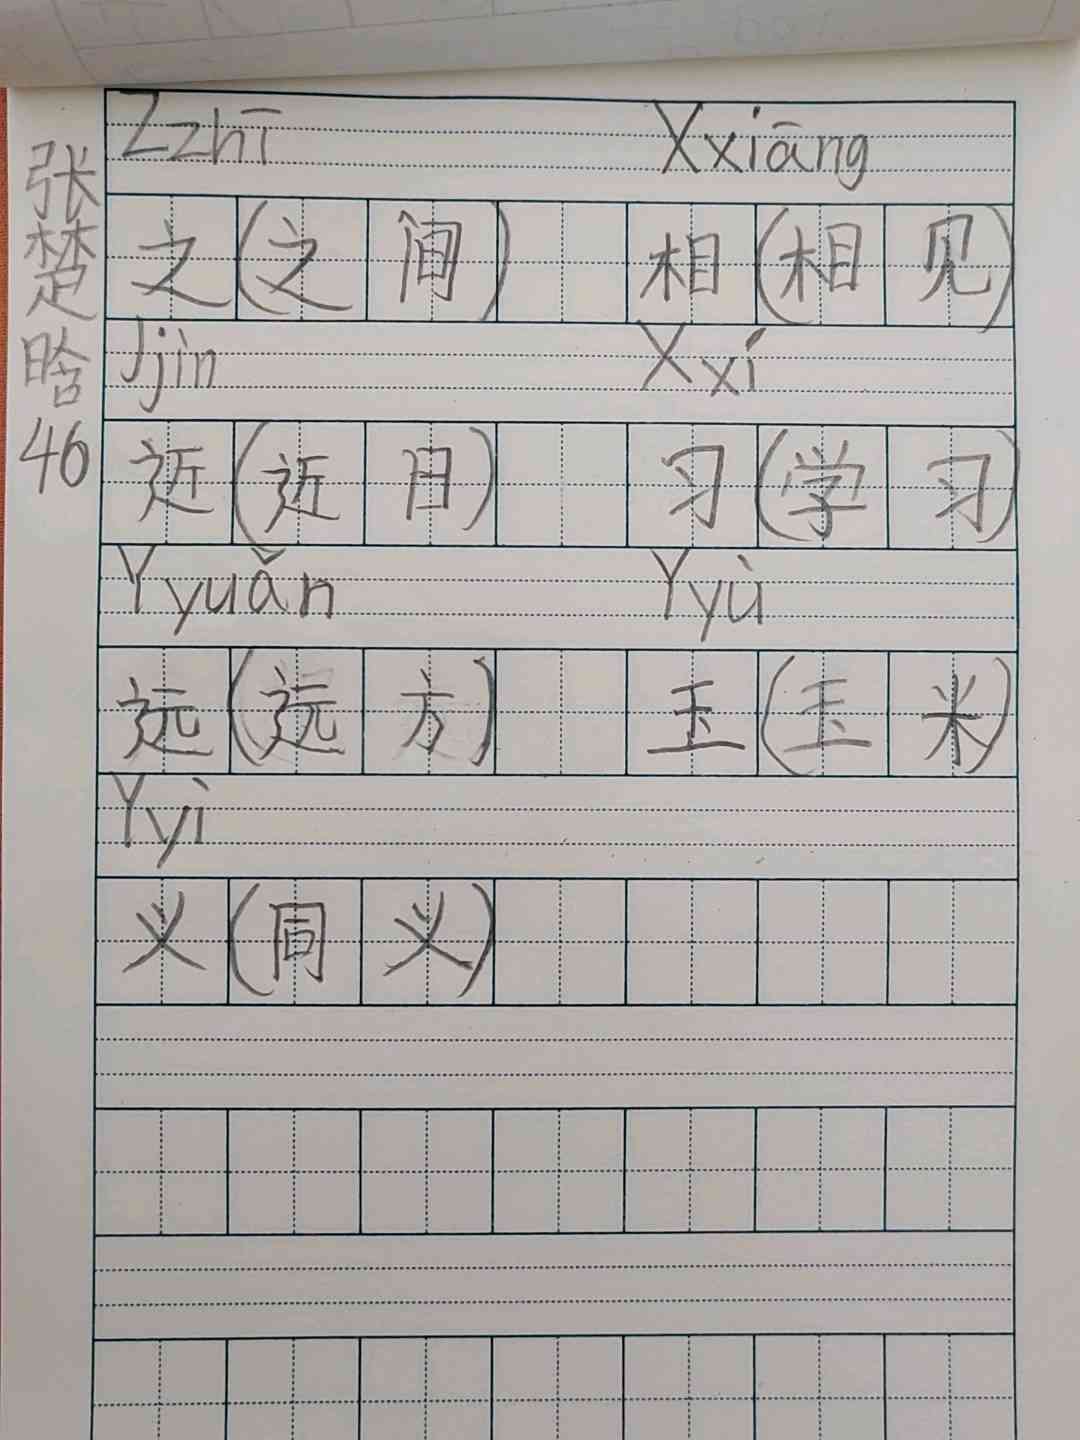 张楚晗46
Zzhī Xxiāng
之(之间) 相(相见)
Jjìn Xxí
近(近日) 习(学习)
Yyuǎn Yyù
远(远方) 玉(玉米)
Yyì
义(同义)